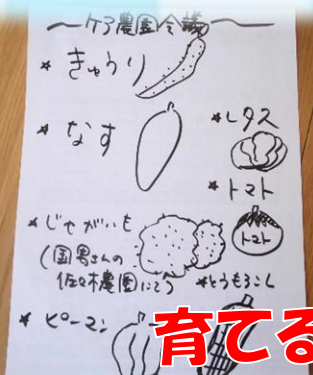 〜ケア農園会議〜
★きゅうり
★なす
★レタス
★トマト
トマト
★じゃがいも
(国男さんの
佐々木農園にて)
★とうもろこし
★ピーマン
育てる